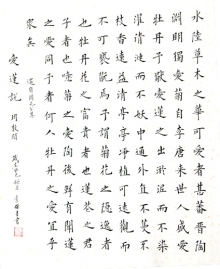 水陸草木之華可愛者甚蕃晉陶
淵明獨愛菊自李唐來世人盛愛
牡丹予獨愛蓮之出淤泥而不染
濯清漣而不妖中通外直不蔓不
枝香遠益清亭亭淨植可遠觀而
不可褻翫焉予謂菊花之隱逸者
也牡丹花之富貴者也蓮花之君
子者也噫菊之愛陶後鮮有聞蓮
之愛同予者何人牡丹之愛宜乎
眾矣
愛蓮說 周敦頤